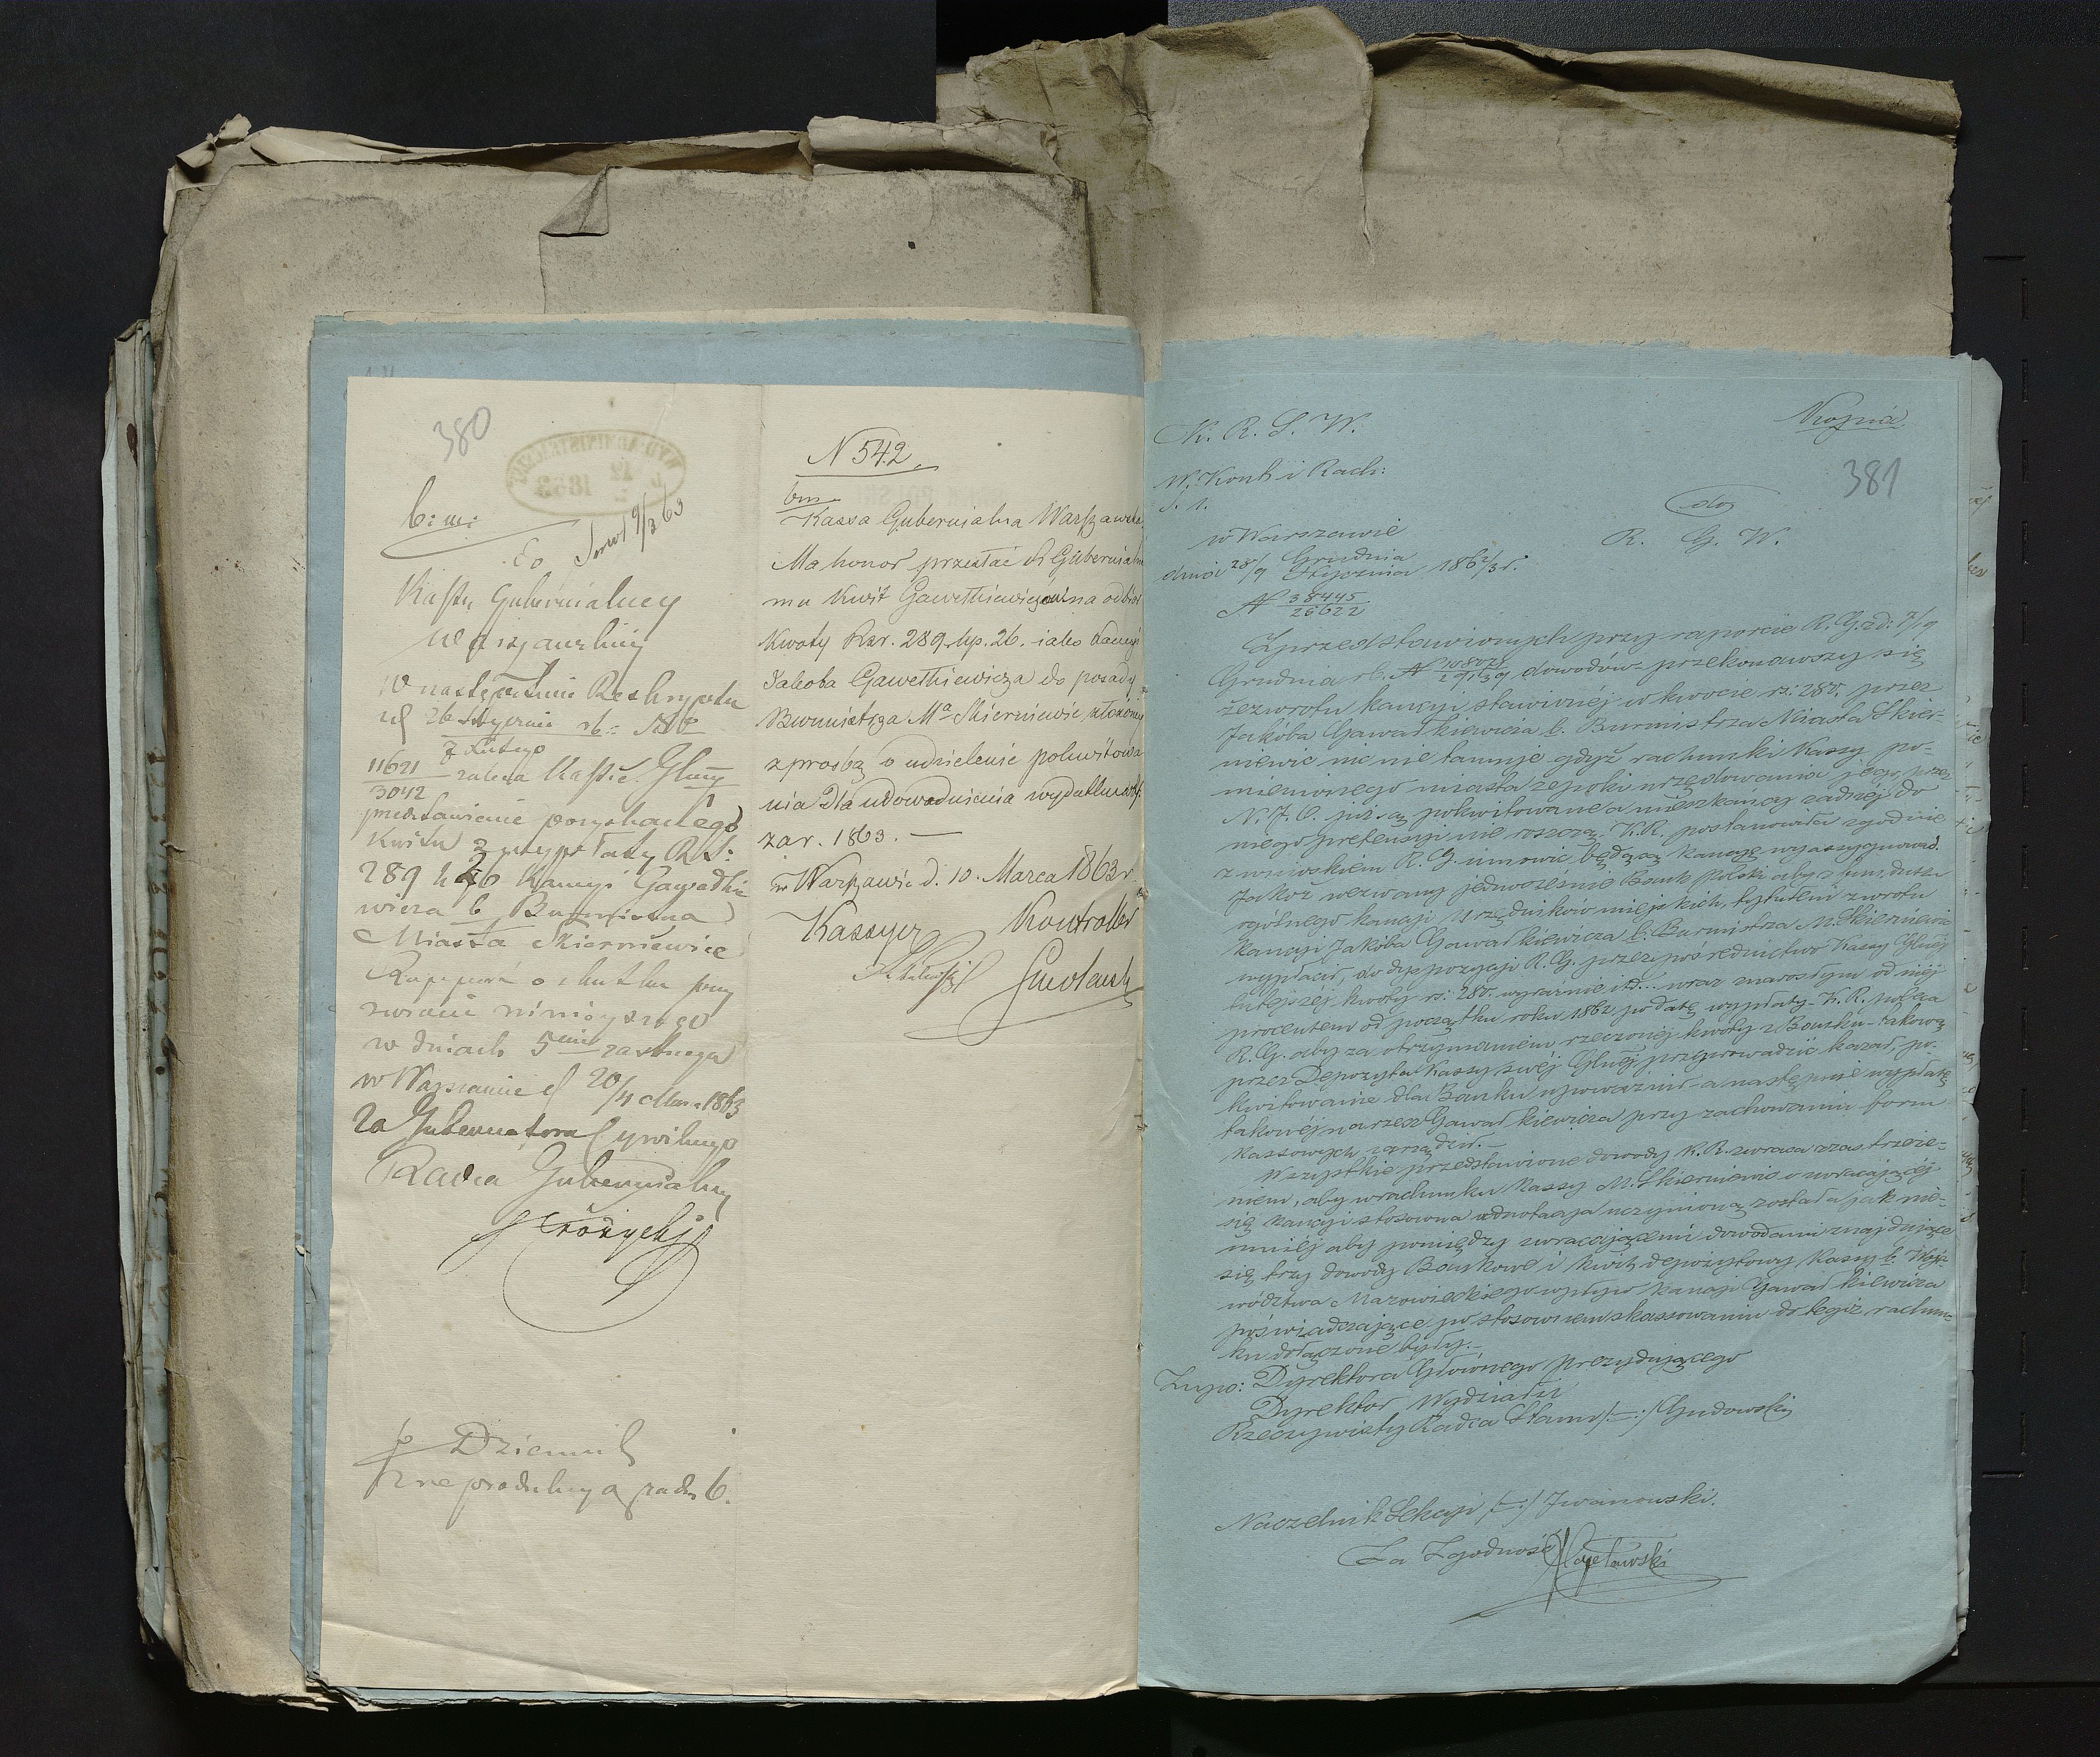 380
b: m:
Do
Kassy Gubernialney
Warszawskiey
W następstwie Reskryptu
d 26 Stycznia rb: No
7 Lutego
11621
3042
zaleca Kassie Głney
przedstawienie pozyskanego
kwitu z wypłaty RS:
289 k 26 Kaucyi Gawadkie
wicza b Burmistrza
Miasta Skierniewice
Rapport o skutku przy
zwrocie ninieyszego
w dniach 5
w Warszawie d 20/4 Mar. 1863
za Gubernatora Cywilnego
Radca Gubernialny
Dziennik
N 542.
bm.
Kassa Gubernialna Warszawska
Ma honor przesłać Rz Gubernialne
mu Kwit Gawetkiewicza na odbiór
Kwoty Rsr. 289. kp. 26. jako Kaucyi
Jakoba Gawetkiewicza do posady
Burmistrza Ma Skierniewic złożonej
z prośbą o udzielenie pokwitowa
nia dla udowodnienia wydatku
za r. 1863. —
w Warszawie d. 10. Marca 1863 r.
Kassyer Kontroler
Kopia
381
K. R. S. W.
W. Kont: i Rach:
S. 1.
do
R. G. W.
w Warszawie
dnia 28/9 Grudnia
Stycznia 1862/3 r.
N 38445
26622
Z przedstawionych przy raporcie R. G. z d: 7/19
Grudnia rb. N dowodów przekonawszy się
że zwrotu kaucyi stawionéj w kwocie rs: 280. przez
Jakóba Gawadkiewicza b. Burmistrza Miasta Skier-
niewic nic nie tamuje gdyż rachunki Kassy po-
mienionego miasta z epoki urzędowania jego, przez
N. I. O. już są pokwitowane a mieszkańcy żadnéj do
niego pretensyi nie roszczą. K. R. postanowiła zgodnie
z wnioskiem R. G. umowić będącą kaucyę wyassygnować.
Jakoż wezwany jednocześnie Bank Polski aby z funduszu
ogólnego kaucyi Urzędników miejskich, tytułem zwrotu
kaucyi Jakóba Gawadkiewicza b. Burmistrza M. Skierniewic
wypłacił, do dyspozycyi R. G. przez pośrednictwo Kassy Głnéj
tutejszéj kwoty rs: 280. wyraźnie itd... wraz z narosłym od niéj
procentem od początku roku 1862 po datę wypłaty. K. R. poleca
R. G. aby za otrzymaniem rzeczonéj kwoty z Banku – takową
przez Depozyta Kassy swéj Głnéj przeprowadzić kazał, po-
kwitowanie dla Banku upoważnił a następnie wypłatę
takowéj na rzecz Gawadkiewicza przy zachowaniu form
kassowych zarządził. –
Wszystkie przedstawione dowody K. R. zwraca z zastrzeże-
niem, aby w rachunku Kassy M. Skierniewic o zwracającéj
się kaucyi stosowna adnotacya uczynioną została jak nie-
mniéj aby pomiędzy zwracającemi dowodami znajdujące
się trzy dowody Bankowe i kwit depozytowy Kassy b. Woje-
wództwa Mazowieckiego wpływ kaucyi Gawadkiewicza
poświadczające po stosownem skassowaniu do tegoż rachun-
ku dołączone były. –
Zupo: Dyrektora Głównego Prezydującego
Dyrektor Wydziału
Rzeczywisty Radca Stanu /–:/ Gudowski
Naczelnik Sekcyi /–:/ Iwanowski.
Za Zgodność